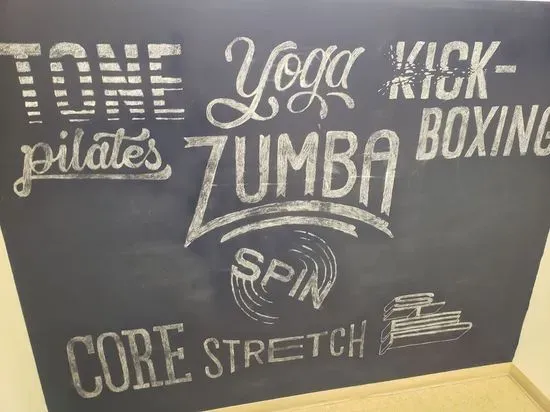 TONE
Yoga
KICK-
BOXING
pilates
ZUMBA
SPIN
CORE
STRETCH